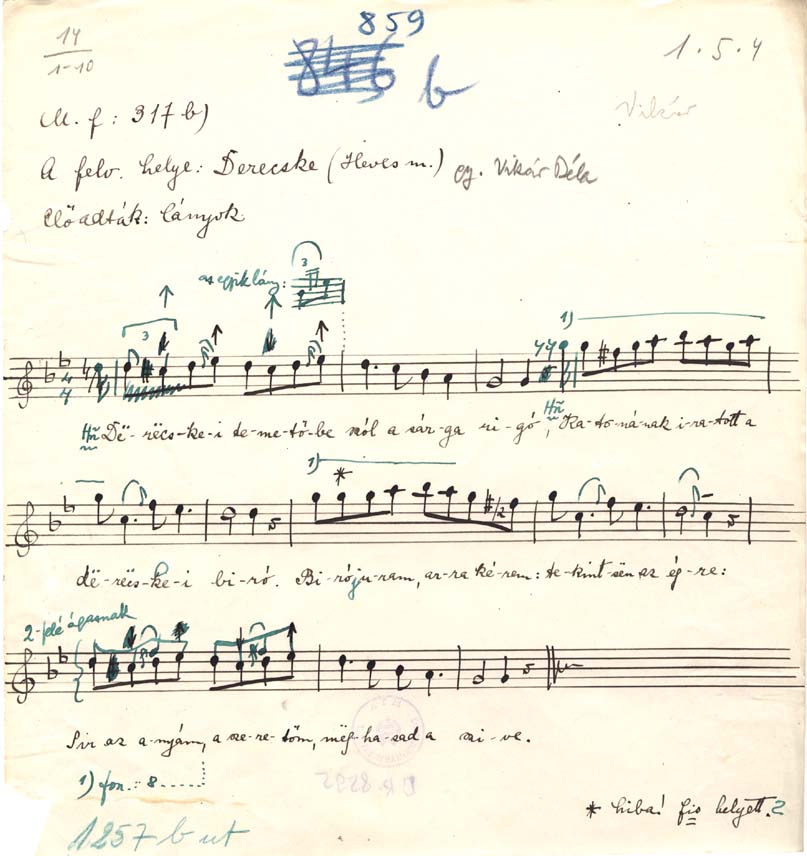 14
1-10
859
846
b
1.5.4
Vikár
M. f: 317 b)
A felv. helye: Derecske (Heves m.) gy. Vikár Béla
Előadták: lányok
az egyik lány:
1)
Hň Dë-rëcs-ke-i te-me-tő-be szól a sár-ga ri-gó, Hň Ka-to-ná-nak i-ra-tott a
1) *
dë-rëcs-ke-i bi-ró. Bi-ró ju-ram, ar-ra ké-rem: te-kint-sën az ég-re:
2-felé ágaznak
Sir az a-nyám, a sze-re-tőm, mëg-ha-sad a szi-ve.
1) fon.: 8
* hiba! fis helyett.
1257 b ut